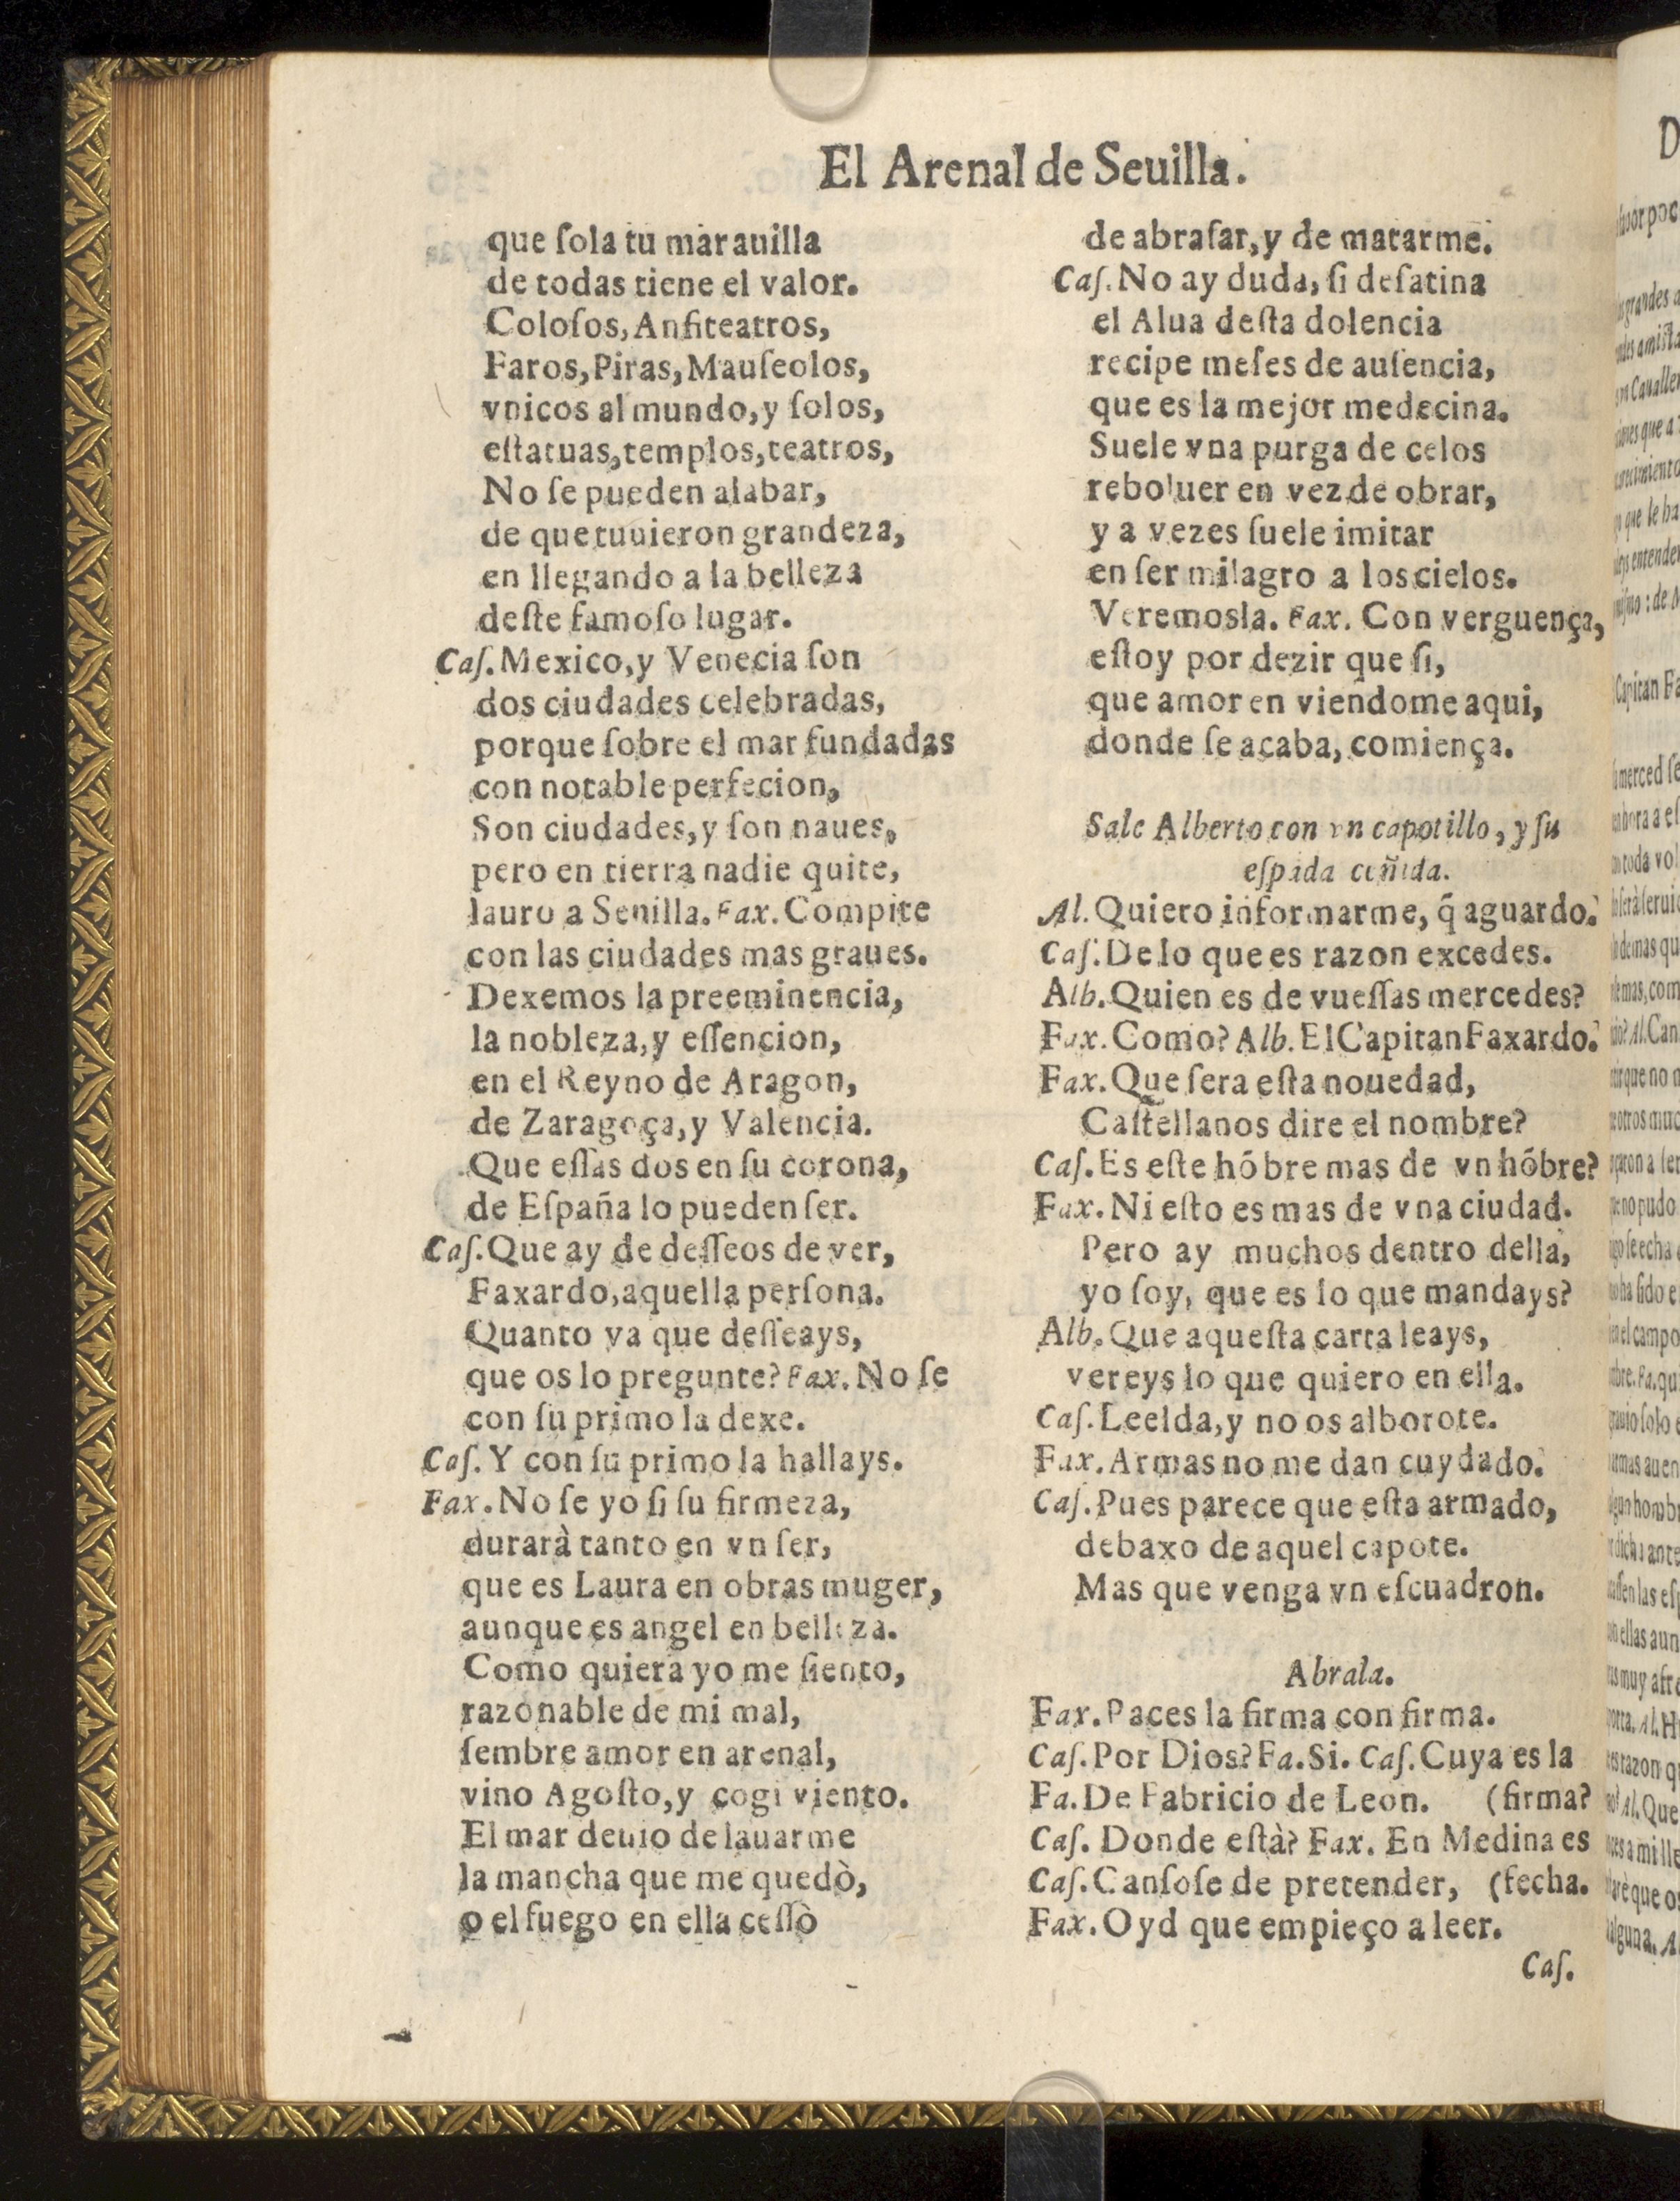 El Arenal de Seuilla.
que ſola tu marauilla
de todas tiene el valor.
Coloſos, Anfiteatros,
Faros, Piras, Mauſeolos,
vnicos al mundo, y ſolos,
eſtatuas, templos, teatros,
No ſe pueden alabar,
de que tuuieron grandeza,
en llegando a la belleza
deſte famoſo lugar.
Caſ. Mexico, y Venecia ſon
dos ciudades celebradas,
porque ſobre el mar fundadas
con notable perfecion,
Son ciudades, y ſon naues,
pero en tierra nadie quite,
lauro a Seuilla. Fax. Compite
con las ciudades mas graues.
Dexemos la preeminencia,
la nobleza, y eſſencion,
en el Reyno de Aragon,
de Zaragoça, y Valencia.
Que eſſas dos en ſu corona,
de Eſpaña lo pueden ſer.
Caſ. Que ay de deſſeos de ver,
Faxardo, aquella perſona.
Quanto va que deſſeays,
que os lo pregunte? Fax. No ſe
con ſu primo la dexe.
Caſ. Y con ſu primo la hallays.
Fax. No ſe yo ſi ſu firmeza,
durarà tanto en vn ſer,
que es Laura en obras muger,
aunque es angel en belleza.
Como quiera yo me ſiento,
razonable de mi mal,
ſembre amor en arenal,
vino Agoſto, y cogi viento.
El mar deuio de lauarme
la mancha que me quedò,
o el fuego en ella ceſſò
de abraſar, y de matarme.
Caſ. No ay duda, ſi deſatina
el Alua deſta dolencia
recipe meſes de auſencia,
que es la mejor medecina.
Suele vna purga de celos
reboluer en vez de obrar,
y a vezes ſuele imitar
en ſer milagro a los cielos.
Veremosla. Fax. Con verguença,
eſtoy por dezir que ſi,
que amor en viendome aqui,
donde ſe acaba, comiença.
Sale Alberto con vn capotillo, y ſu
eſpada ceñida.
Al. Quiero informarme, q̃ aguardo.
Caſ. De lo que es razon excedes.
Alb. Quien es de vueſſas mercedes?
Fax. Como? Alb. El Capitan Faxardo.
Fax. Que ſera eſta nouedad,
Caſtellanos dire el nombre?
Caſ. Es eſte hõbre mas de vn hõbre?
Fax. Ni eſto es mas de vna ciudad.
Pero ay muchos dentro della,
yo ſoy, que es lo que mandays?
Alb. Que aqueſta carta leays,
vereys lo que quiero en ella.
Caſ. Leelda, y no os alborote.
Fax. Armas no me dan cuydado.
Caſ. Pues parece que eſta armado,
debaxo de aquel capote.
Mas que venga vn eſcuadron.
Abrala.
Fax. Paces la firma con firma.
Caſ. Por Dios? Fa. Si. Caſ. Cuya es la
Fa. De Fabricio de Leon. (firma?
Caſ. Donde eſtà? Fax. En Medina es
Caſ. Canſoſe de pretender, (fecha.
Fax. Oyd que empieço a leer.
Caſ.